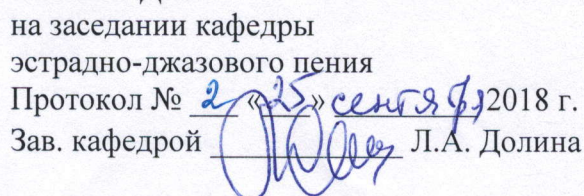 на заседании кафедры
эстрадно-джазового пения
Протокол № 2 «25» сентября 2018 г.
Зав. кафедрой Л.А. Долина